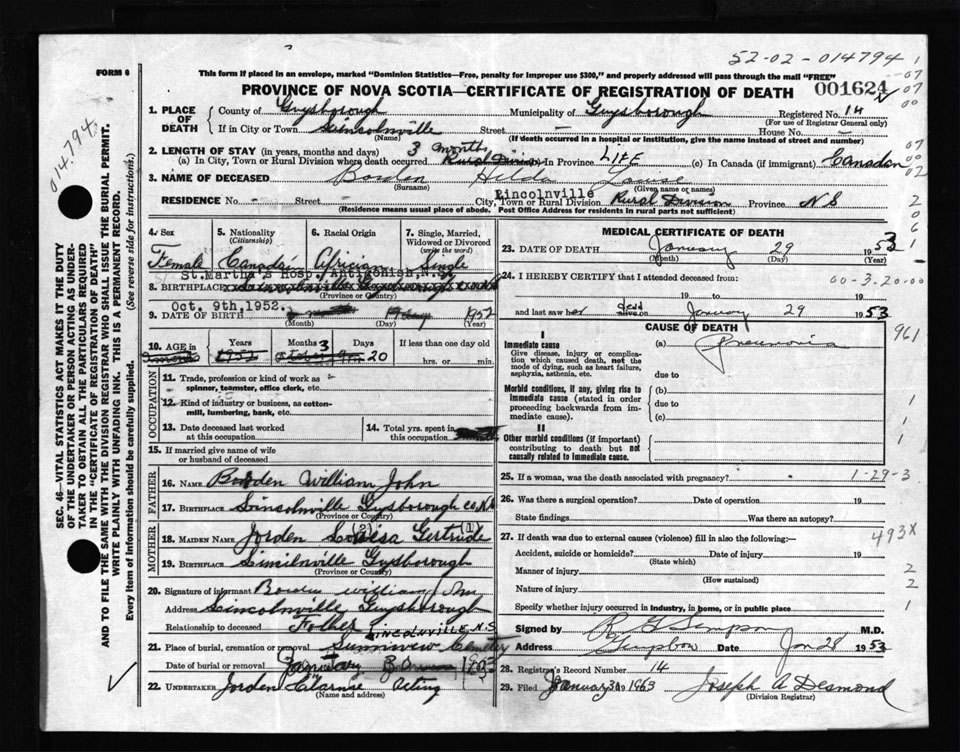 52-02-014794
FORM 6
This form if placed in an envelope, marked "Dominion Statistics—Free, penalty for improper use $300," and properly addressed will pass through the mail "FREE"
PROVINCE OF NOVA SCOTIA—CERTIFICATE OF REGISTRATION OF DEATH 001624
014,794.
1. PLACE OF DEATH County of Guysborough Municipality of Guysborough Registered No. 14
(For use of Registrar General only)
If in City or Town Lincolnville Street House No.
(Name) (If death occurred in a hospital or institution, give the name instead of street and number)
2. LENGTH OF STAY (in years, months and days) 3 months
(a) In City, Town or Rural Division where death occurred Rural Division In Province LIFE (c) In Canada (if immigrant) Canadian
3. NAME OF DECEASED Borden Hilda Louise
(Surname) (Given name or names)
Lincolnville
RESIDENCE No. - Street City, Town or Rural Division Rural Division Province NS
(Residence means usual place of abode. Post Office Address for residents in rural parts not sufficient)
4. Sex 5. Nationality (Citizenship) 6. Racial Origin 7. Single, Married, Widowed or Divorced (write the word)
Female Canadi African Single
St. Martha's Hosp. Antigonish, N.S.
8. BIRTHPLACE
(Province or Country)
Oct. 9th, 1952.
9. DATE OF BIRTH 1952
(Month) (Day) (Year)
10. AGE in Years Months 3 Days 20 If less than one day old
1952 hrs. or min.
OCCUPATION
11. Trade, profession or kind of work as spinner, teamster, office clerk, etc.
12. Kind of industry or business, as cotton-mill, lumbering, bank, etc.
13. Date deceased last worked at this occupation
14. Total yrs. spent in this occupation
15. If married give name of wife or husband of deceased
FATHER
16. NAME Borden William John
17. BIRTHPLACE Lincolnville Guysborough co NS
(Province or Country)
MOTHER
18. MAIDEN NAME Jorden Louisa (2) Gertrude (1)
19. BIRTHPLACE Lincolnville Guysborough
(Province or Country)
20. Signature of informant Borden William John
Address Lincolnville Guysborough
Relationship to deceased Father
LINCOLNVILLE, N.S
21. Place of burial, cremation or removal Sunnivew Cemetery
Date of burial or removal January 1953
22. UNDERTAKER Jorden Clarnse Acting
(Name and address)
MEDICAL CERTIFICATE OF DEATH
23. DATE OF DEATH January 29 1953
(Month) (Day) (Year)
24. I HEREBY CERTIFY that I attended deceased from:
00-3.20-00
19 to 19
and last saw her dead alive on January 29 1953
CAUSE OF DEATH
961
I
Immediate cause (a) Pneumonia
Give disease, injury or complication which caused death, not the mode of dying, such as heart failure, asphyxia, asthenia, etc.
due to
Morbid conditions, if any, giving rise to immediate cause (stated in order proceeding backwards from immediate cause).
(b)
due to
(c)
II
Other morbid conditions (if important) contributing to death but not causally related to immediate cause.
25. If a woman, was the death associated with pregnancy? 1-29-3
26. Was there a surgical operation? Date of operation 19
State findings Was there an autopsy?
27. If death was due to external causes (violence) fill in also the following:— 493X
Accident, suicide or homicide? Date of injury 19
(State which)
Manner of injury
(How sustained)
Nature of injury
Specify whether injury occurred in industry, in home, or in public place
Signed by M.D.
Address Date Jan 28 1953
28. Registrar's Record Number 14
29. Filed January 30 1953 Joseph A Desmond
(Division Registrar)
SEC. 46—VITAL STATISTICS ACT MAKES IT THE DUTY
OF THE UNDERTAKER OR PERSON ACTING AS UNDERTAKER TO OBTAIN ALL THE PARTICULARS REQUIRED
IN THE "CERTIFICATE OF REGISTRATION OF DEATH"
AND TO FILE THE SAME WITH THE DIVISION REGISTRAR WHO SHALL ISSUE THE BURIAL PERMIT.
WRITE PLAINLY WITH UNFADING INK. THIS IS A PERMANENT RECORD.
Every item of information should be carefully supplied. (See reverse side for instructions.)